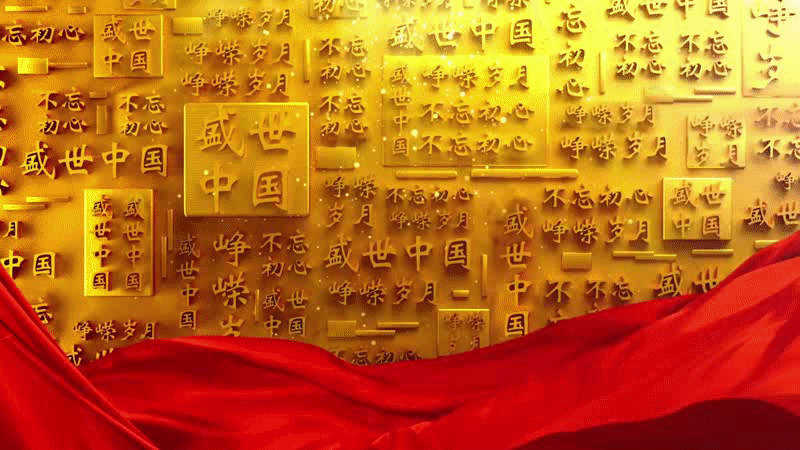 忘
初心
盛世
中国
峥嵘岁月
峥嵘岁月
不忘
初心
盛世中国
不忘
初心
不忘
初心
峥嵘
岁
不忘
初心
不忘
初心
盛世中国
盛世
中国
盛世中国
峥嵘岁月
不忘初心
不忘初心
峥嵘岁月
峥嵘岁月
峥嵘
岁月
不忘
初心
盛世中国
盛世中国
盛世中国
峥嵘岁
不忘
初心
峥嵘
岁月
不忘初心
盛世中国
峥嵘岁月
盛世中国
不忘初心
峥嵘岁月
盛世
中国
月
中国
忘
初心
峥嵘岁月
盛世
中国
不忘初心
峥嵘
岁月
不忘
初心